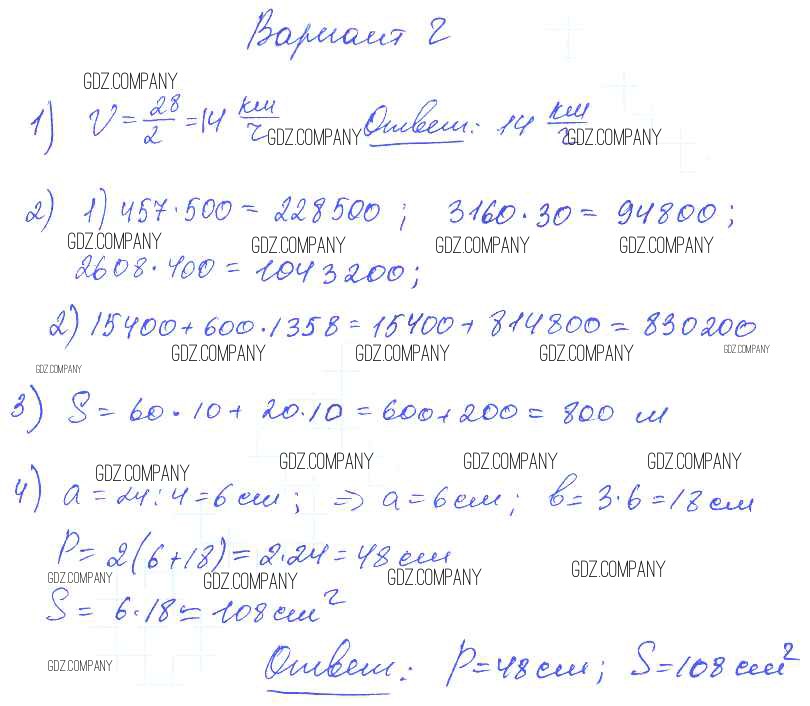 Вариант 2
GDZ.COMPANY
1) V = 28/2 = 14 км/ч Ответ: 14 км/ч
GDZ.COMPANY GDZ.COMPANY
2) 1) 457·500 = 228500 ; 3160·30 = 94800 ;
GDZ.COMPANY GDZ.COMPANY GDZ.COMPANY GDZ.COMPANY
2608·400 = 1043200 ;
2) 15400 + 600·1358 = 15400 + 814800 = 830200
GDZ.COMPANY GDZ.COMPANY GDZ.COMPANY GDZ.COMPANY
GDZ.COMPANY
3) S = 60·10 + 20·10 = 600 + 200 = 800 м
GDZ.COMPANY GDZ.COMPANY GDZ.COMPANY GDZ.COMPANY
4) a = 24:4 = 6 см ; => a = 6 см ; b = 3·6 = 18 см
P = 2(6+18) = 2·24 = 48 см
GDZ.COMPANY GDZ.COMPANY GDZ.COMPANY GDZ.COMPANY
S = 6·18 = 108 см²
GDZ.COMPANY
Ответ: P = 48 см ; S = 108 см²